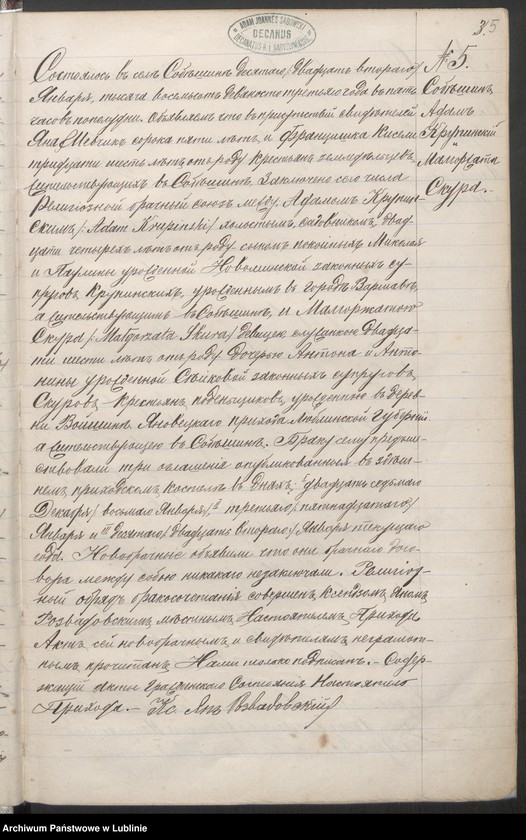 35
ADAM JOANNES SADOWSKI
DECANUS
№ 5.
Собѣшинъ
Адамъ
Крупинскій
"
Малгоржата
Скура.
Состоялось въ селѣ Собѣшинѣ десятаго /двадцать втораго/
Января, тысяча восемьсотъ девяносто третьяго года въ пять
часовъ пополудни. Объявляемъ что въ присутствіи свидѣтелей
Яна Шевчикъ сорока пяти лѣтъ, и Францишка Кисель
тридцати шести лѣтъ отъ роду крестьянъ земледѣльцевъ
жительствующихъ въ Собѣшинѣ. Заключено сего числа
Религіозный брачный союзъ между Адамомъ Крупин-
скимъ /Adam Krupinski/ холостымъ, садовникомъ, двад-
цати четырехъ лѣтъ отъ роду сыномъ покойныхъ Николая
и Паулины урожденной законныхъ су-
пруговъ Крупинскихъ, урожденнымъ въ городѣ Варшавѣ,
а жительствующимъ въ Собѣшинѣ, и Малгоржатою
Скура /Małgorzata Skura/ дѣвицею, служанкою двадца-
ти шести лѣтъ отъ роду дочерью Антона и Анто-
нины урожденной законныхъ супруговъ
Скуровъ, крестьянъ поденьщиковъ, урожденною въ дерев-
ни прихода Люблинской Губерніи
а жительствующею въ Собѣшинѣ. Браку сему предше-
ствовали три оглашенія опубликованныя въ здѣш-
немъ приходскомъ костелѣ въ дняхъ: I двадцать седьмаго
Декабря/ восьмаго Января/, II третьяго/ пятнадцатаго/
Января и III десятаго/ двадцать втораго/ Января текущаго
года. Новобрачные объявили что они брачнаго дого-
вора между собою никакаго незаключали. Религіоз-
ный обрядъ бракосочетанія совершенъ Ксендзомъ Яномъ
Розвадовскимъ мѣстнымъ Настоятелемъ Прихода.
Актъ сей новобрачнымъ и свидѣтелямъ неграмот-
нымъ прочитанъ, Нами только подписанъ. — Содер-
жащій акты Гражданскаго Состоянія Настоятель
Прихода. — Кс. Янъ Розвадовскій
Archiwum Państwowe w Lublinie